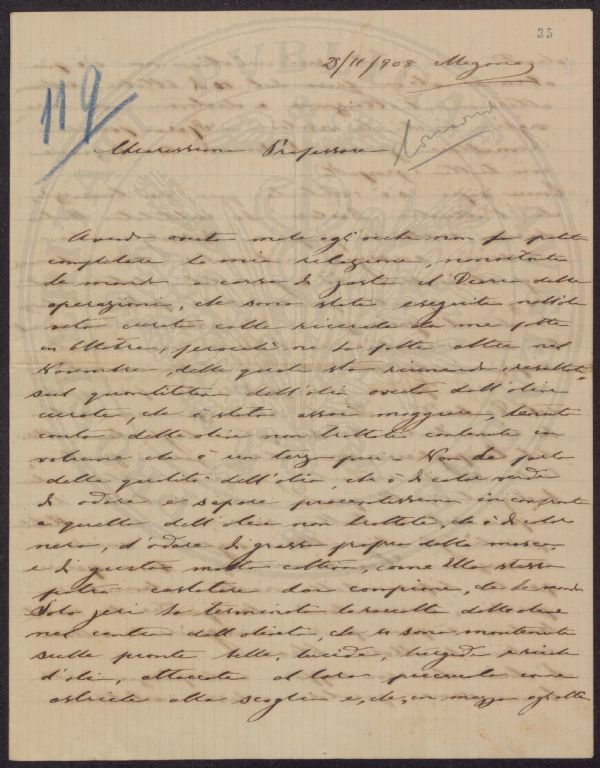 35
25/11/908 Megara
119
Chiarissimo Professore
Avendo avuto male agli occhi non fu potuto
completare la mia relazione, nonostante
le mando a corsa di posta il Diario delle
operazioni, che sono state eseguite nell'oli
veto curato colla ricerca da me fatte
in Ottobre, perocchè ne ho fatte altre nel
Novembre, delle quali sto risultati
sul quantitativo dell'olio avuto dall'olive
curate, che è stato assai maggiore, tenuto
conto delle olive non trattate contenute in
volume che è un terzo più. Non da parte
della qualità dell'olio, che è di color verde
di odore e sapore in confronto
a quello dell'olive non trattate, che è di color
nero, d'odore di grasso proprio della mosca,
e di gusto molto cattivo, come Ella stessa
potrà constatare dai campioni, che le mando
Solo jeri ho terminato la raccolta delle olive
nel centro dell'oliveto, che si sono mantenute
sulle piante belle, lucide, turgide e ricche
d'olio, attaccate al loro picciuolo come
ostriche allo scoglio e, che, in mezzo agli altri